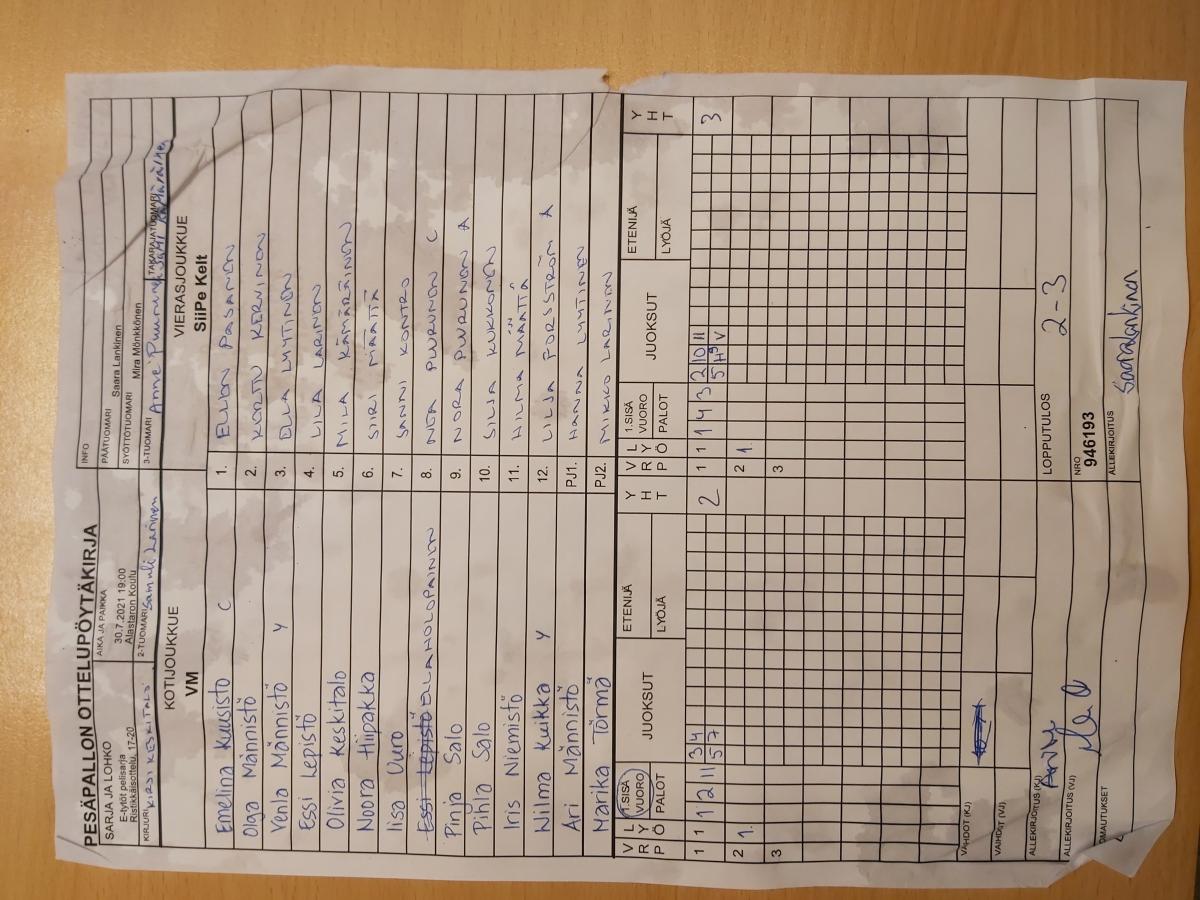 PESÄPALLON OTTELUPÖYTÄKIRJA
INFO
SARJA JA LOHKO
E-tytöt pelisarja
Ristikkäisottelu, 17-20
AIKA JA PAIKKA
30.7.2021 19:00
Alastaron Koulu
PÄÄTUOMARI
Saara Lankinen
SYÖTTÖTUOMARI
Mira Mönkkönen
KIRJURI KIRSI KESKITALO
2-TUOMARI Samuli Laininen
3-TUOMARI Anne Puurunen
TAKARAJATUOMARI Sami Kämäräinen
KOTIJOUKKUE
VM
VIERASJOUKKUE
SiiPe Kelt
Emelina Kuusisto C 1. ELLEN PASANEN
Olga Männistö 2. KERTTU KERVINEN
Venla Männistö Y 3. ELLA LYYTINEN
Essi Lepistö 4. LILA LARINEN
Olivia Keskitalo 5. MILA KÄMÄRÄINEN
Noora Hiipakka 6. SIIRI MÄÄTTÄ
Iisa Uuro 7. SANNI KONTRO
Essi Lepistö ELLA HOLOPAINEN 8. NEA PUURUNEN C
Pinja Salo 9. NORA PUURUNEN A
Pihla Salo 10. SILJA KUKKONEN
Iris Niemistö 11. HILMA MÄÄTTÄ
Wilma Kuikka Y 12. LILJA FORSSTRÖM A
Ari Männistö PJ1. HANNA LYYTINEN
Marika Törmä PJ2. MIKKO LARINEN
V L
R Y
P Ö
1.SISÄ
VUORO
PALOT
JUOKSUT
ETENIJÄ
LYÖJÄ
Y
H
T
V L
R Y
P Ö
1.SISÄ
VUORO
PALOT
JUOKSUT
ETENIJÄ
LYÖJÄ
Y
H
T
1 1 1 2 11 3 4 2
5 7
1 1 1 4 3 2 10 11 3
5 H9 V
2 1.
2 1.
3
3
VAIHDOT (KJ)
VAIHDOT (VJ)
ALLEKIRJOITUS (KJ)
LOPPUTULOS 2-3
ALLEKIRJOITUS (VJ)
NRO
946193
HUOMAUTUKSET
ALLEKIRJOITUS
Saara Lankinen